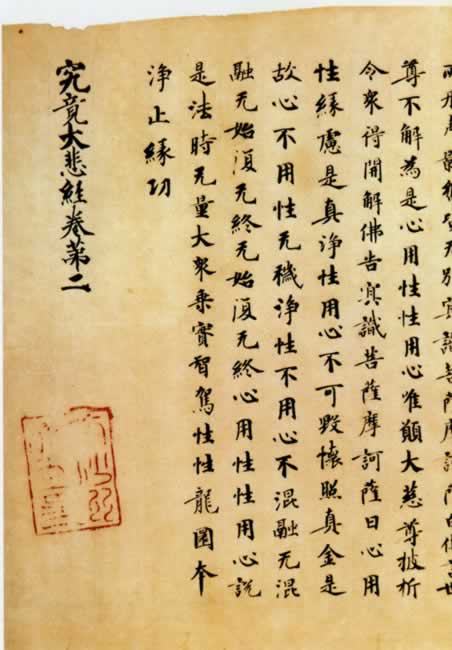 无別冥識菩薩摩訶薩白佛言世
尊不解為是心用性性用心唯願大慈尊披析
令衆得開解佛告冥識菩薩摩訶薩曰心用
性緣慮是真淨性用心不可毀懷照真金是
故心不用性无穢淨性不用心不混融无混
融无始復无終无始復无終心用性性用心説
是法時无量大衆乘實智駕性性龍國本
淨止緣功
究竟大悲經卷第二